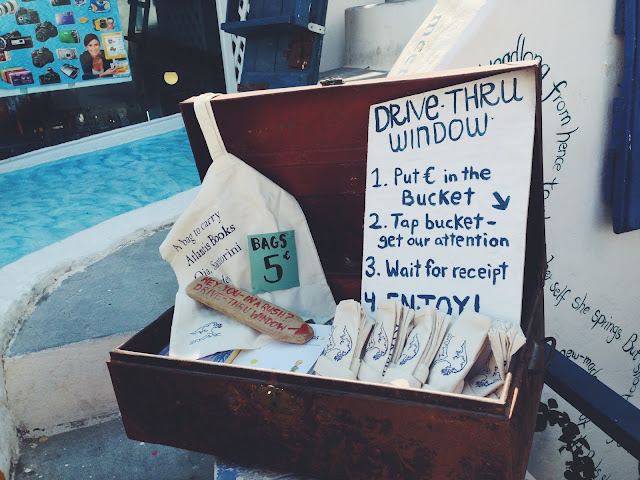 DRIVE-THRU
WINDOW
1. Put € in the
Bucket
2. Tap bucket-
get our attention
3. Wait for receipt
4. ENJOY!
A bag to carry
Atlantis Books
Oia, Santorini
BAGS
5€
HEY YOU, IN A RUSH?
DRIVE-THRU WINDOW
from hence to
her self she springs